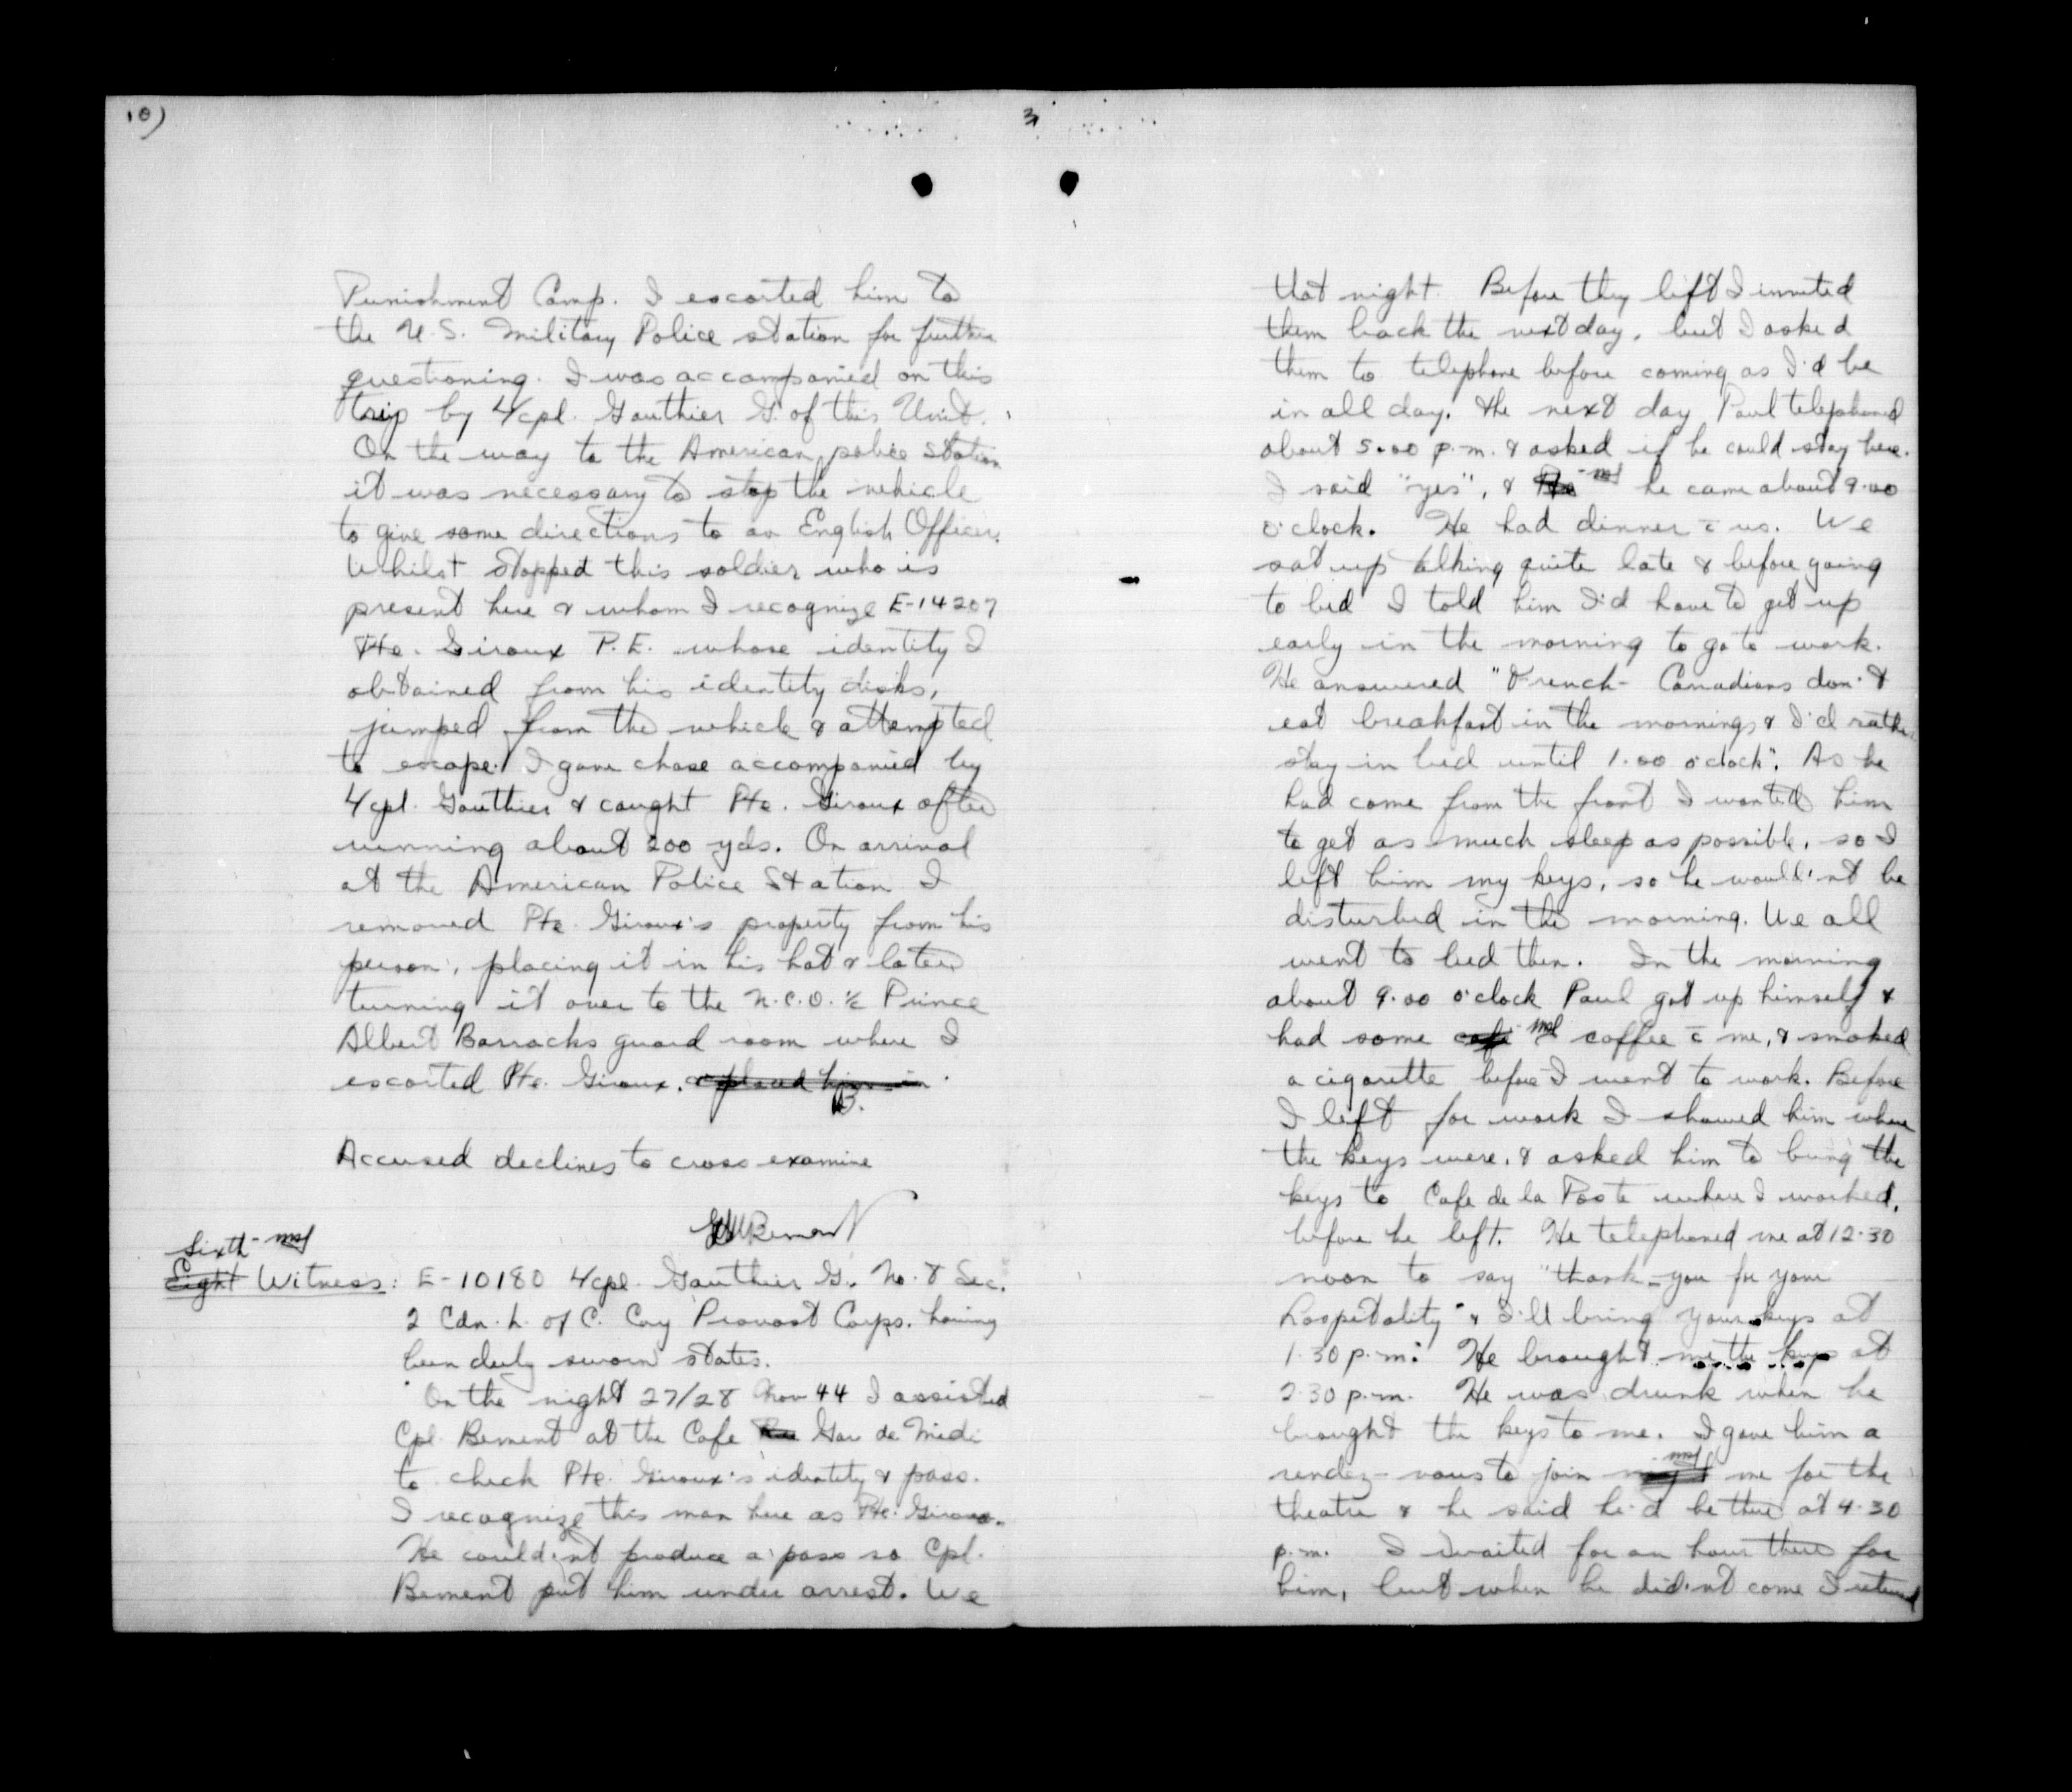 10)
Punishment Camp. I escorted him to
the U.S. Military Police station for further
questioning. I was accompanied on this
trip by L/cpl. Gauthier G. of this Unit.
On the way to the American police station
it was necessary to stop the vehicle
to give some directions to an English Officer.
Whilst stopped this soldier who is
present here & whom I recognize E-14207
Pte. Giroux P.E. whose identity I
obtained from his identity disks,
jumped from the vehicle & attempted
to escape. I gave chase accompanied by
L/cpl. Gauthier & caught Pte. Giroux after
running about 200 yds. On arrival
at the American Police Station I
removed Pte. Giroux's property from his
person, placing it in his hat & later
turning it over to the N.C.O. i/c Prince
Albert Barracks guard room where I
escorted Pte. Giroux. & placed him in
B.
Accused declines to cross examine
Bement
Sixth
Eight Witness: E-10180 L/cpl. Gauthier G. No. 8 Sec.
2 Cdn. L. of C. Coy Provost Corps. having
been duly sworn states.
"On the night 27/28 Nov 44 I assisted
Cpl. Bement at the Cafe Gar de Midi
to check Pte. Giroux's identity & pass.
I recognize this man here as Pte. Giroux.
He could'nt produce a pass so Cpl.
Bement put him under arrest. We
3
that night. Before they left I invited
them back the next day, but I asked
them to telephone before coming as I'd be
in all day. The next day Paul telephoned
about 5.00 p.m. & asked if he could stay here.
I said "yes", & he came about 9.00
o'clock. He had dinner c̄ us. We
sat up talking quite late & before going
to bed I told him I'd have to get up
early in the morning to go to work.
He answered "French-Canadians don't
eat breakfast in the mornings & I'd rather
stay in bed until 1.00 o'clock". As he
had come from the front I wanted him
to get as much sleep as possible, so I
left him my keys, so he would'nt be
disturbed in the morning. We all
went to bed then. In the morning
about 9.00 o'clock Paul got up himself &
had some coffee c̄ me, & smoked
a cigarette before I went to work. Before
I left for work I showed him where
the keys were, & asked him to bring the
keys to Cafe de la Poste where I worked,
before he left. He telephoned me at 12.30
noon to say "thank-you for your
hospitality" & I'll bring your keys at
1.30 p.m." He brought me the keys at
2.30 p.m. He was drunk when he
brought the keys to me. I gave him a
rendez-vous to join me for the
theatre & he said he'd be there at 4.30
p.m. I waited for an hour there for
him, but when he did'nt come I returned